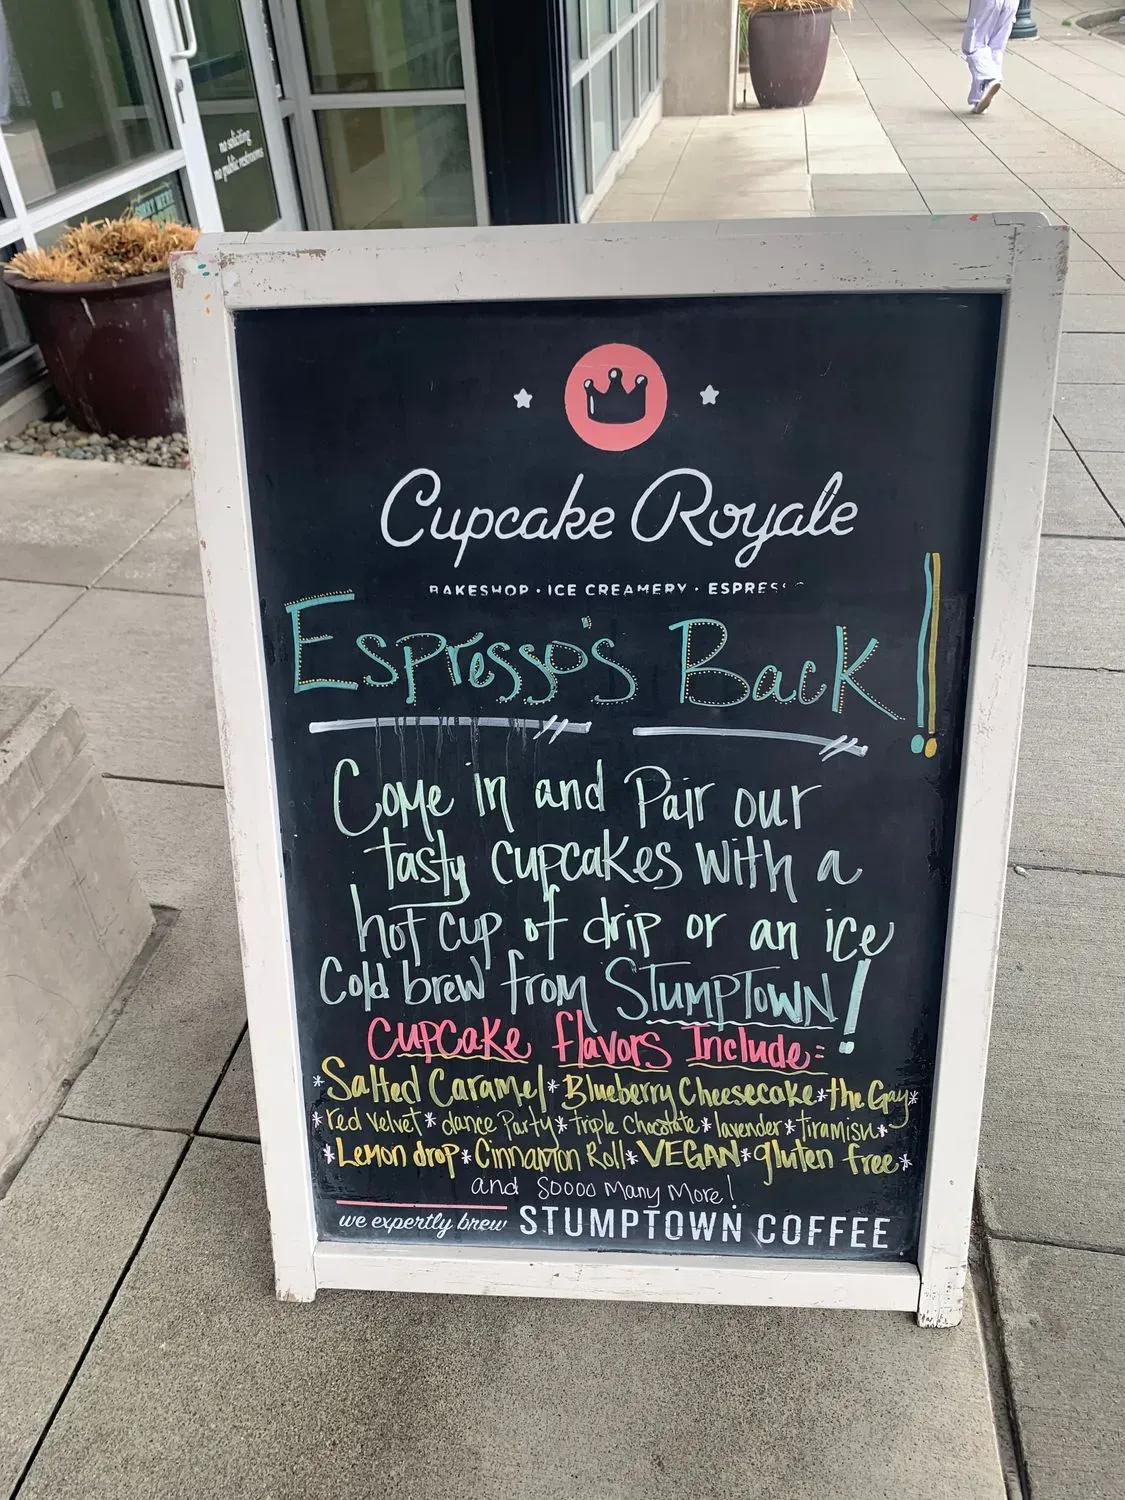 no soliciting
no public restrooms
Cupcake Royale
BAKESHOP · ICE CREAMERY · ESPRESS
Espresso's Back!!
Come in and Pair our
tasty cupcakes with a
hot cup of drip or an ice
Cold brew from STUMPTOWN!
Cupcake flavors Include:
*Salted Caramel*Blueberry Cheesecake*the Gay*
*red velvet*dance Party*triple Chocolate*lavender*tiramisu*
*Lemon drop*Cinnamon Roll*VEGAN*gluten free*
and Soooo Many More!
we expertly brew STUMPTOWN COFFEE